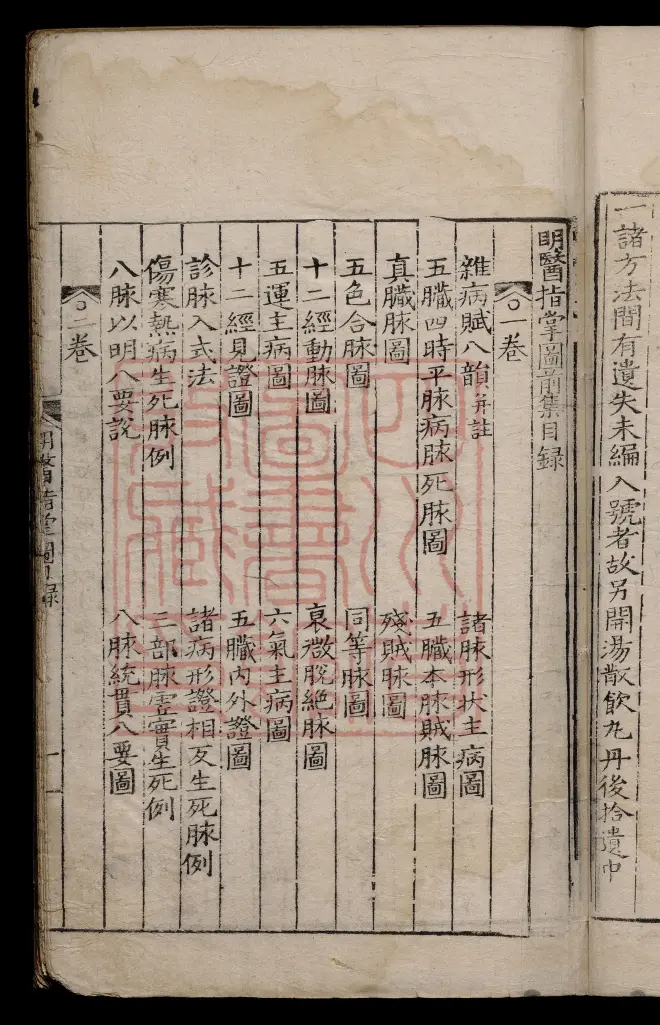 一諸方法間有遺失未編入號者故另開湯散飲丸丹後拾遺中
明醫指掌圖前集目録
一卷
雜病賦八韻并註 諸脉形状主病圖
五臓四時平脉病脉死脉圖 五臓本脉賊脉圖
真臓脉圖 殘賊脉圖
五色合脉圖 同等脉圖
十二經動脉圖 衰微脱絶脉圖
五運主病圖 六氣主病圖
十二經見證圖 五臓内外證圖
診脉入式法 諸病形證相反生死脉例
傷寒熱病生死脉例 三部脉虚實生死例
八脉以明八要説 八脉統貫八要圖
二卷
明醫指掌圖目録 一